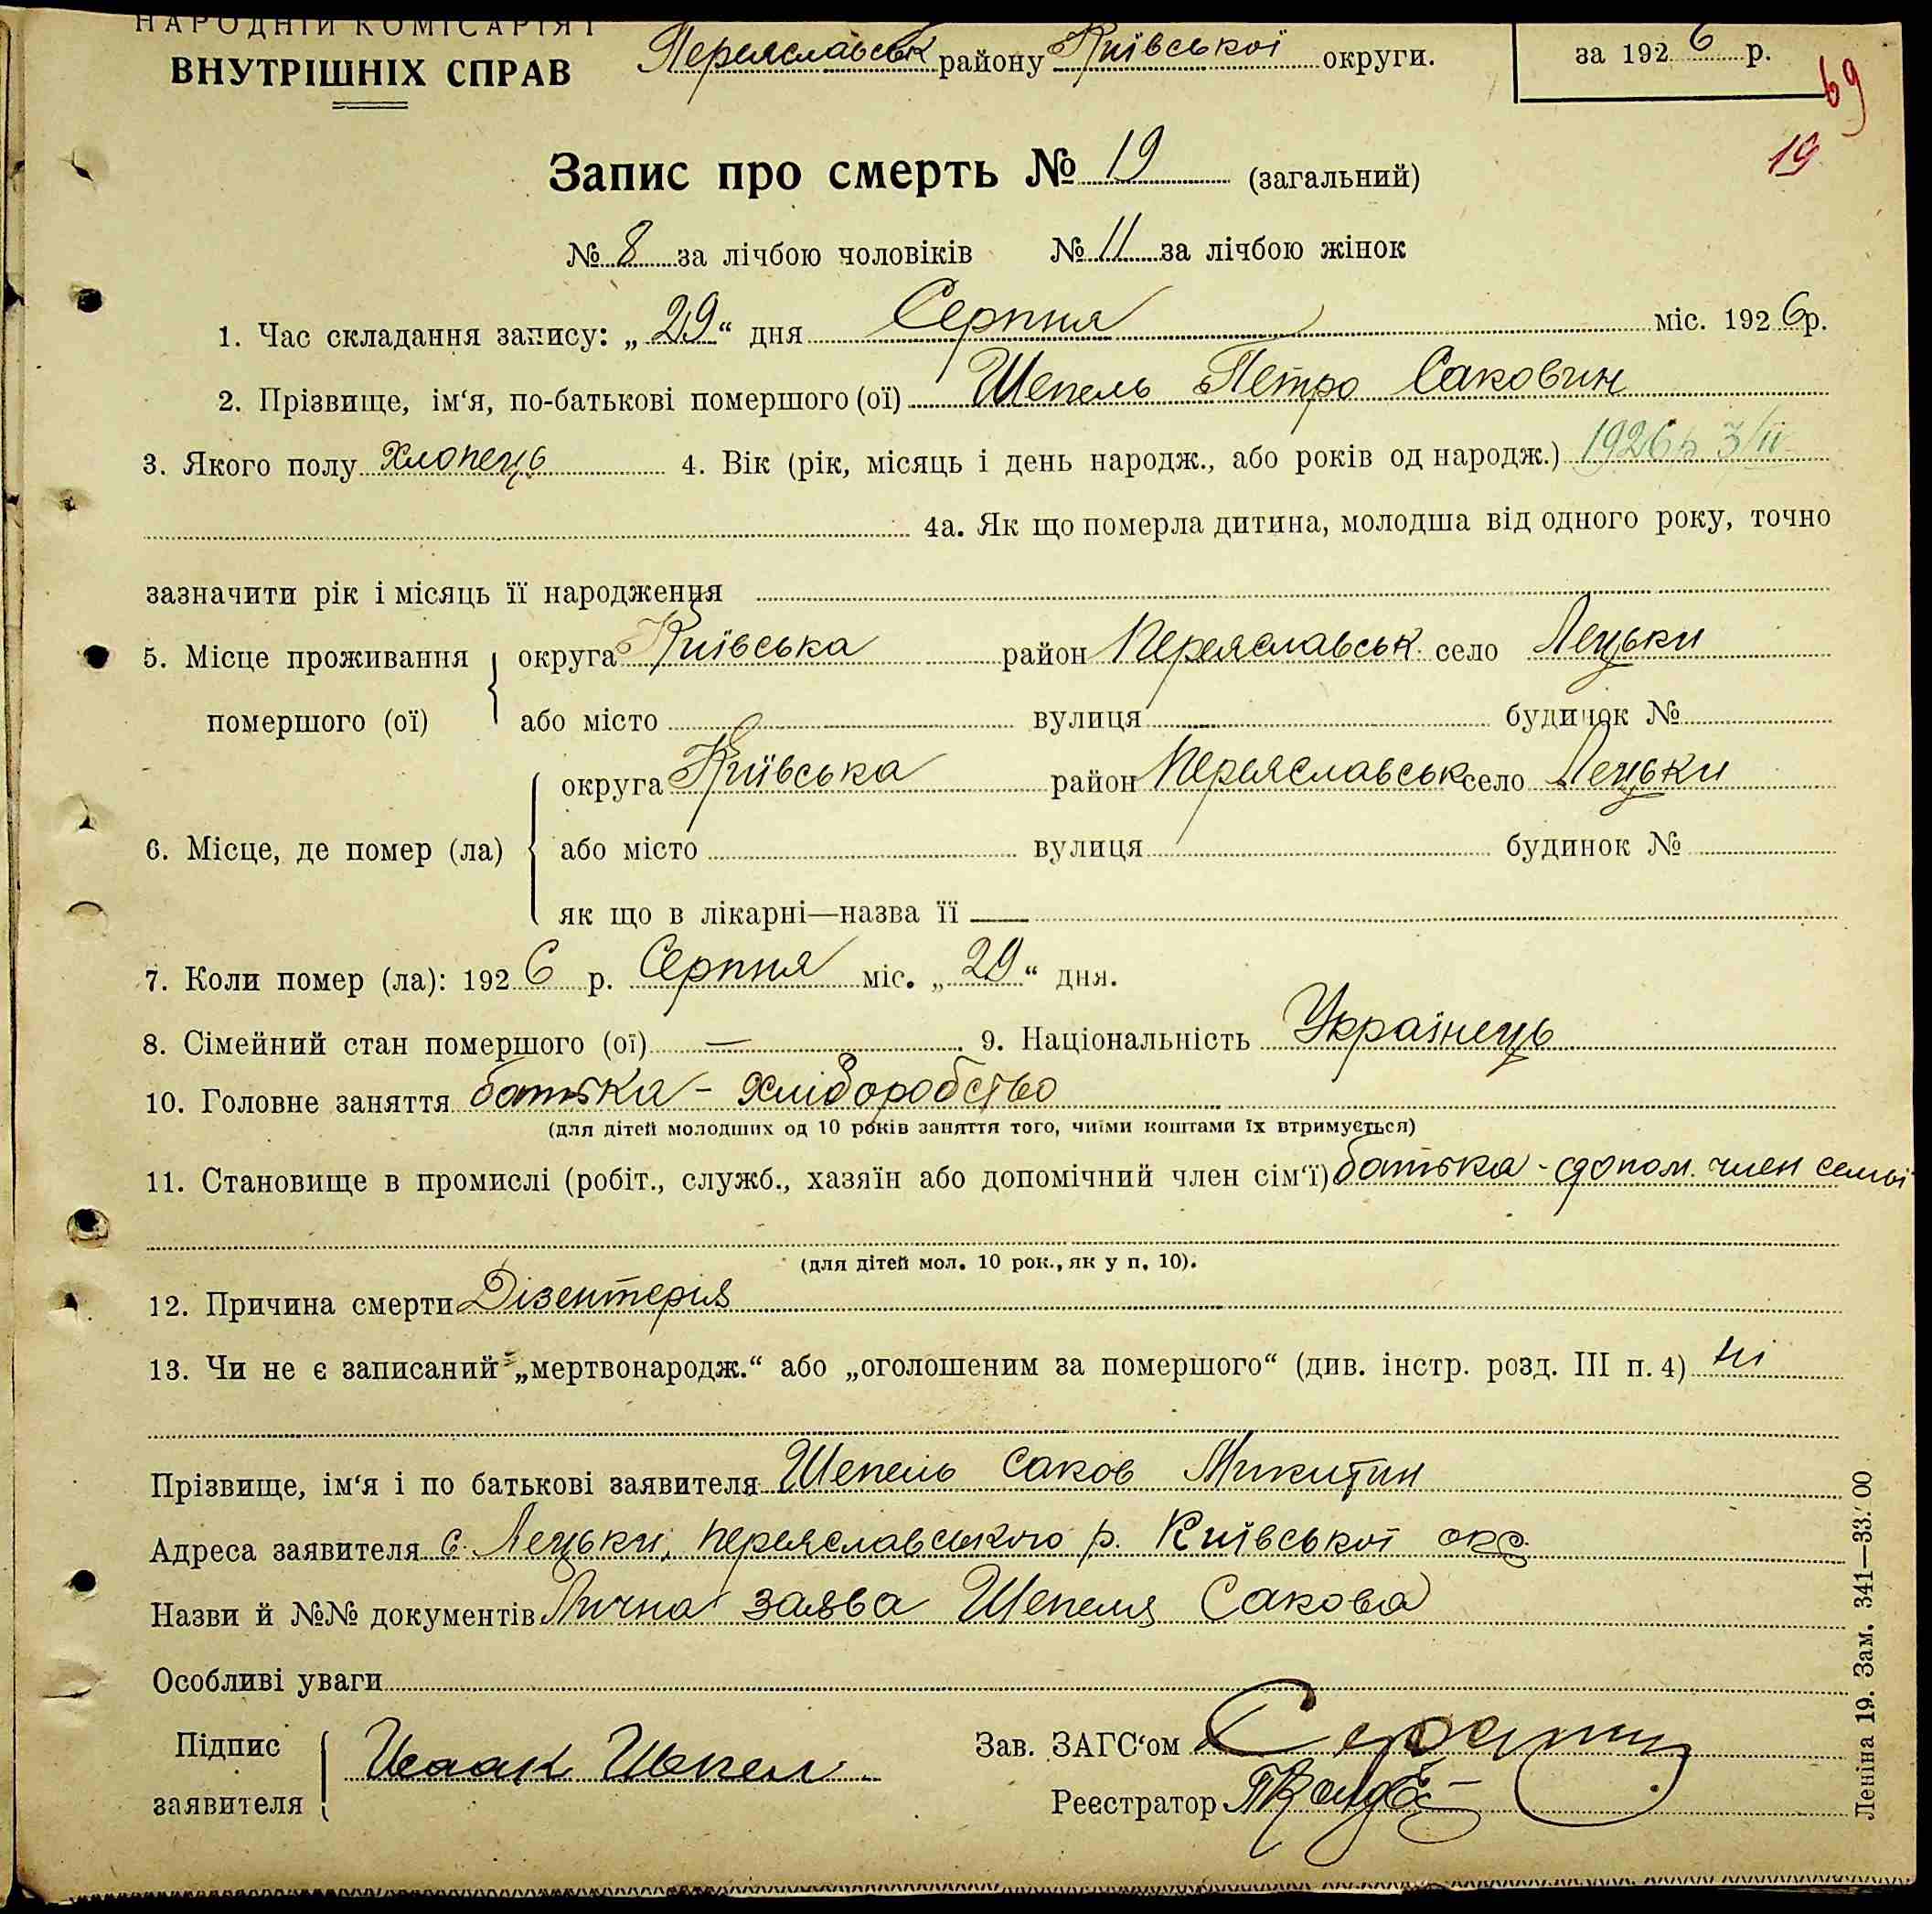 НАРОДНІЙ КОМІСАРІЯТ
ВНУТРІШНІХ СПРАВ
Переяславськ району Київської округи.
за 1926 р.
69
19
Запис про смерть № 19 (загальний)
№ 8 за лічбою чоловіків № 11 за лічбою жінок
1. Час складання запису: „29“ дня Серпня міс. 1926р.
2. Прізвище, ім‘я, по-батькові помершого (ої) Шепель Петро Саковин
3. Якого полу хлопець 4. Вік (рік, місяць і день народж., або років од народж.) 1926 р 3/II
4а. Як що померла дитина, молодша від одного року, точно
зазначити рік і місяць її народження
5. Місце проживання округа Київська район Переяславськ. село Лецьки
помершого (ої) або місто вулиця будинок №
округа Київська район Переяславськ село Лецьки
6. Місце, де помер (ла) або місто вулиця будинок №
як що в лікарні—назва її —
7. Коли помер (ла): 1926 р. Серпня міс. „29“ дня.
8. Сімейний стан помершого (ої) — 9. Національність Українець
10. Головне заняття батька - хліборобство
(для дітей молодших од 10 років заняття того, чиїми коштами їх втримується)
11. Становище в промислі (робіт., служб., хазяїн або допомічний член сім‘ї) батька - допом. член семьї
(для дітей мол. 10 рок., як у п. 10).
12. Причина смерти Дізентерія
13. Чи не є записаний „мертвонародж.“ або „оголошеним за помершого“ (див. інстр. розд. III п. 4) ні
Прізвище, ім‘я і по батькові заявителя Шепель Саков Микитин
Адреса заявителя с. Лецьки, Переяславського р. Київської окр.
Назви й №№ документів Лична заява Шепеля Сакова
Особливі уваги
Підпис заявителя Исаак Шепел
Зав. ЗАГС‘ом
Реєстратор
Леніна 19. Зам. 341—33.′00